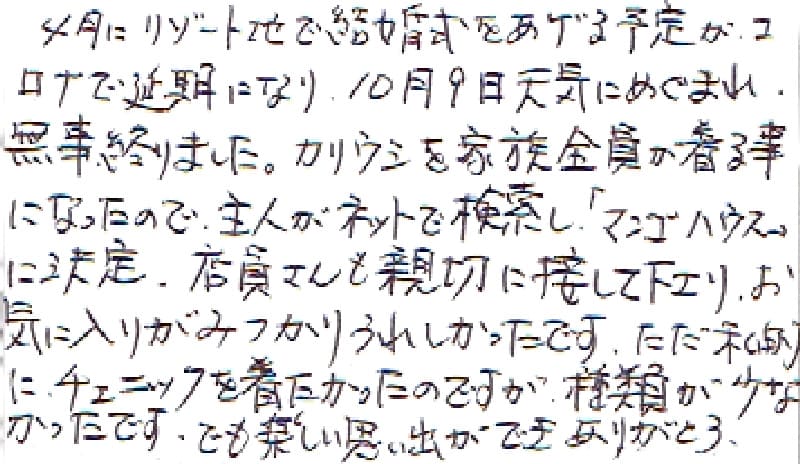 4月にリゾート地で結婚式をあげる予定が、コ
ロナで延期になり、10月9日天気にめぐまれ、
無事終りました。カリウシを家族全員が着る事
になったので、主人がネットで検索し、「マンゴハウス」
に決定。店員さんも親切に接して下さり、お
気に入りがみつかりうれしかったです。ただ私的
に、チュニックを着たかったのですが、種類が少な
かったです。でも楽しい思い出ができありがとう、